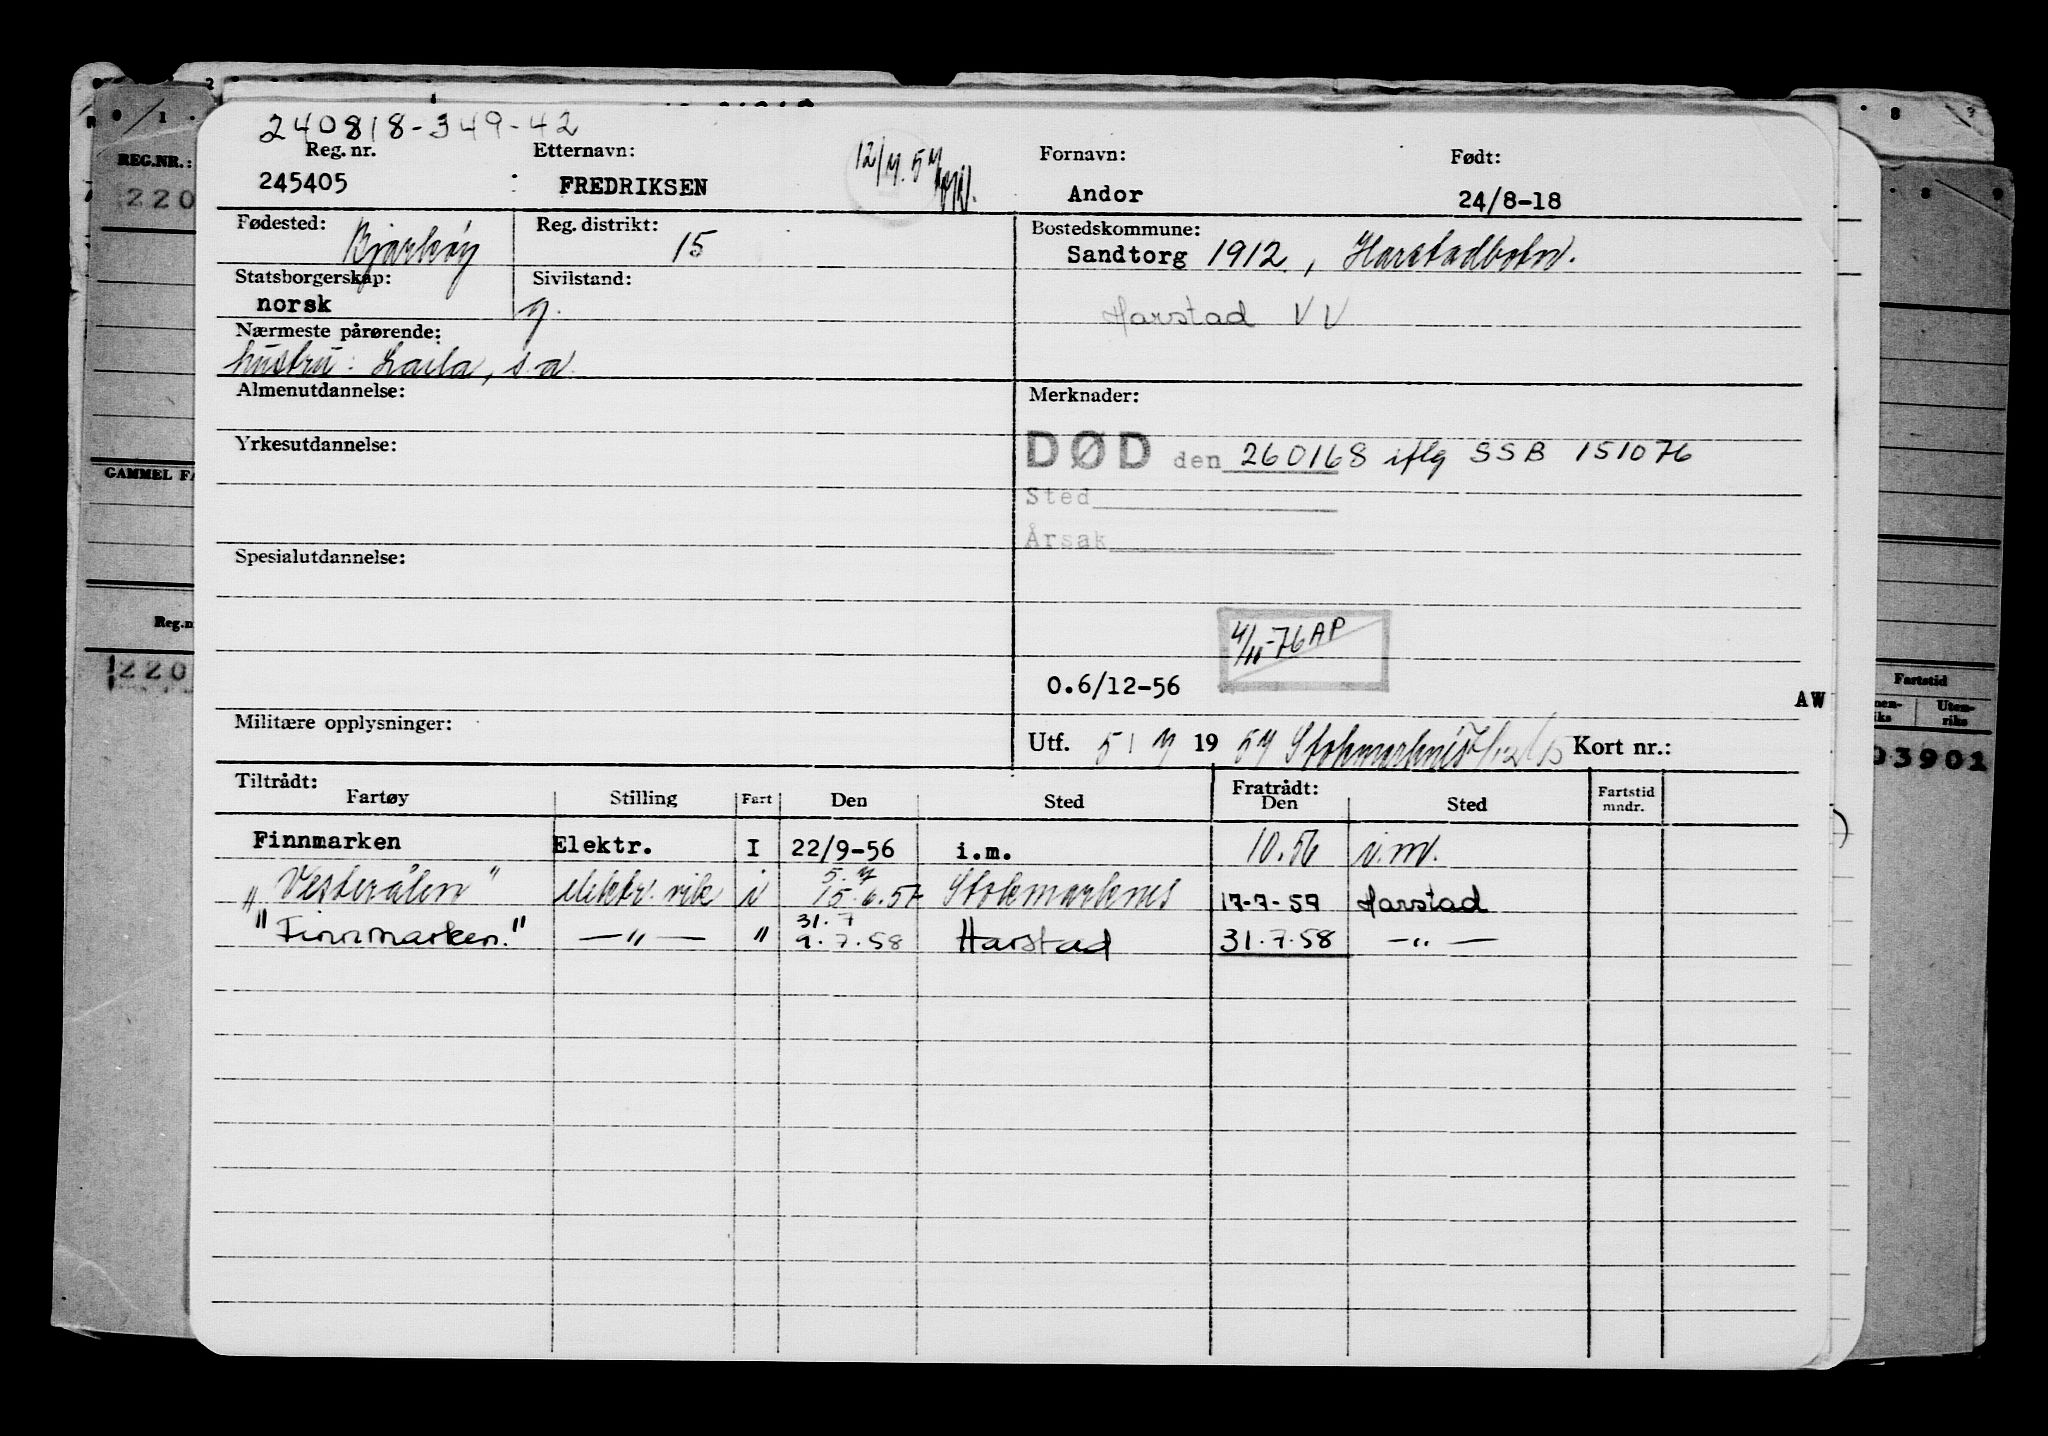 240818-349-42
Reg. nr. Etternavn: Fornavn: Født:
245405 FREDRIKSEN 12/7.57 Andor 24/8-18
Fødested: Bjarkøy Reg. distrikt: 15 Bostedskommune:
Sandtorg 1912, Harstadbotn.
Statsborgerskap: Sivilstand:
norsk g. Harstad VV
Nærmeste pårørende:
hustru: Laila, s.a.
Almenutdannelse: Merknader:
Yrkesutdannelse: DØD den 260168 iflg SSB 151076
Sted
Årsak
Spesialutdannelse:
4/11-76 AP
O.6/12-56
AW
Militære opplysninger: Utf. 5/7 1957 Stokmarknes Kort nr.:
Tiltrådt: Fratrådt:
Fartøy Stilling Fart Den Sted Den Sted Fartstid mndr.
Finnmarken Elektr. I 22/9-56 i.m. 10.56 i.m.
5.7
"Vesterålen" elektr. i 15.6.57 Stokmarknes 17-7-57 Harstad
31.7
"Finnmarken." —"— " 9.7.58 Harstad 31.7.58 —"—
REG.NR.:
220
GAMMEL FA
Reg.n
220
Fartstid
Utenriks
03901